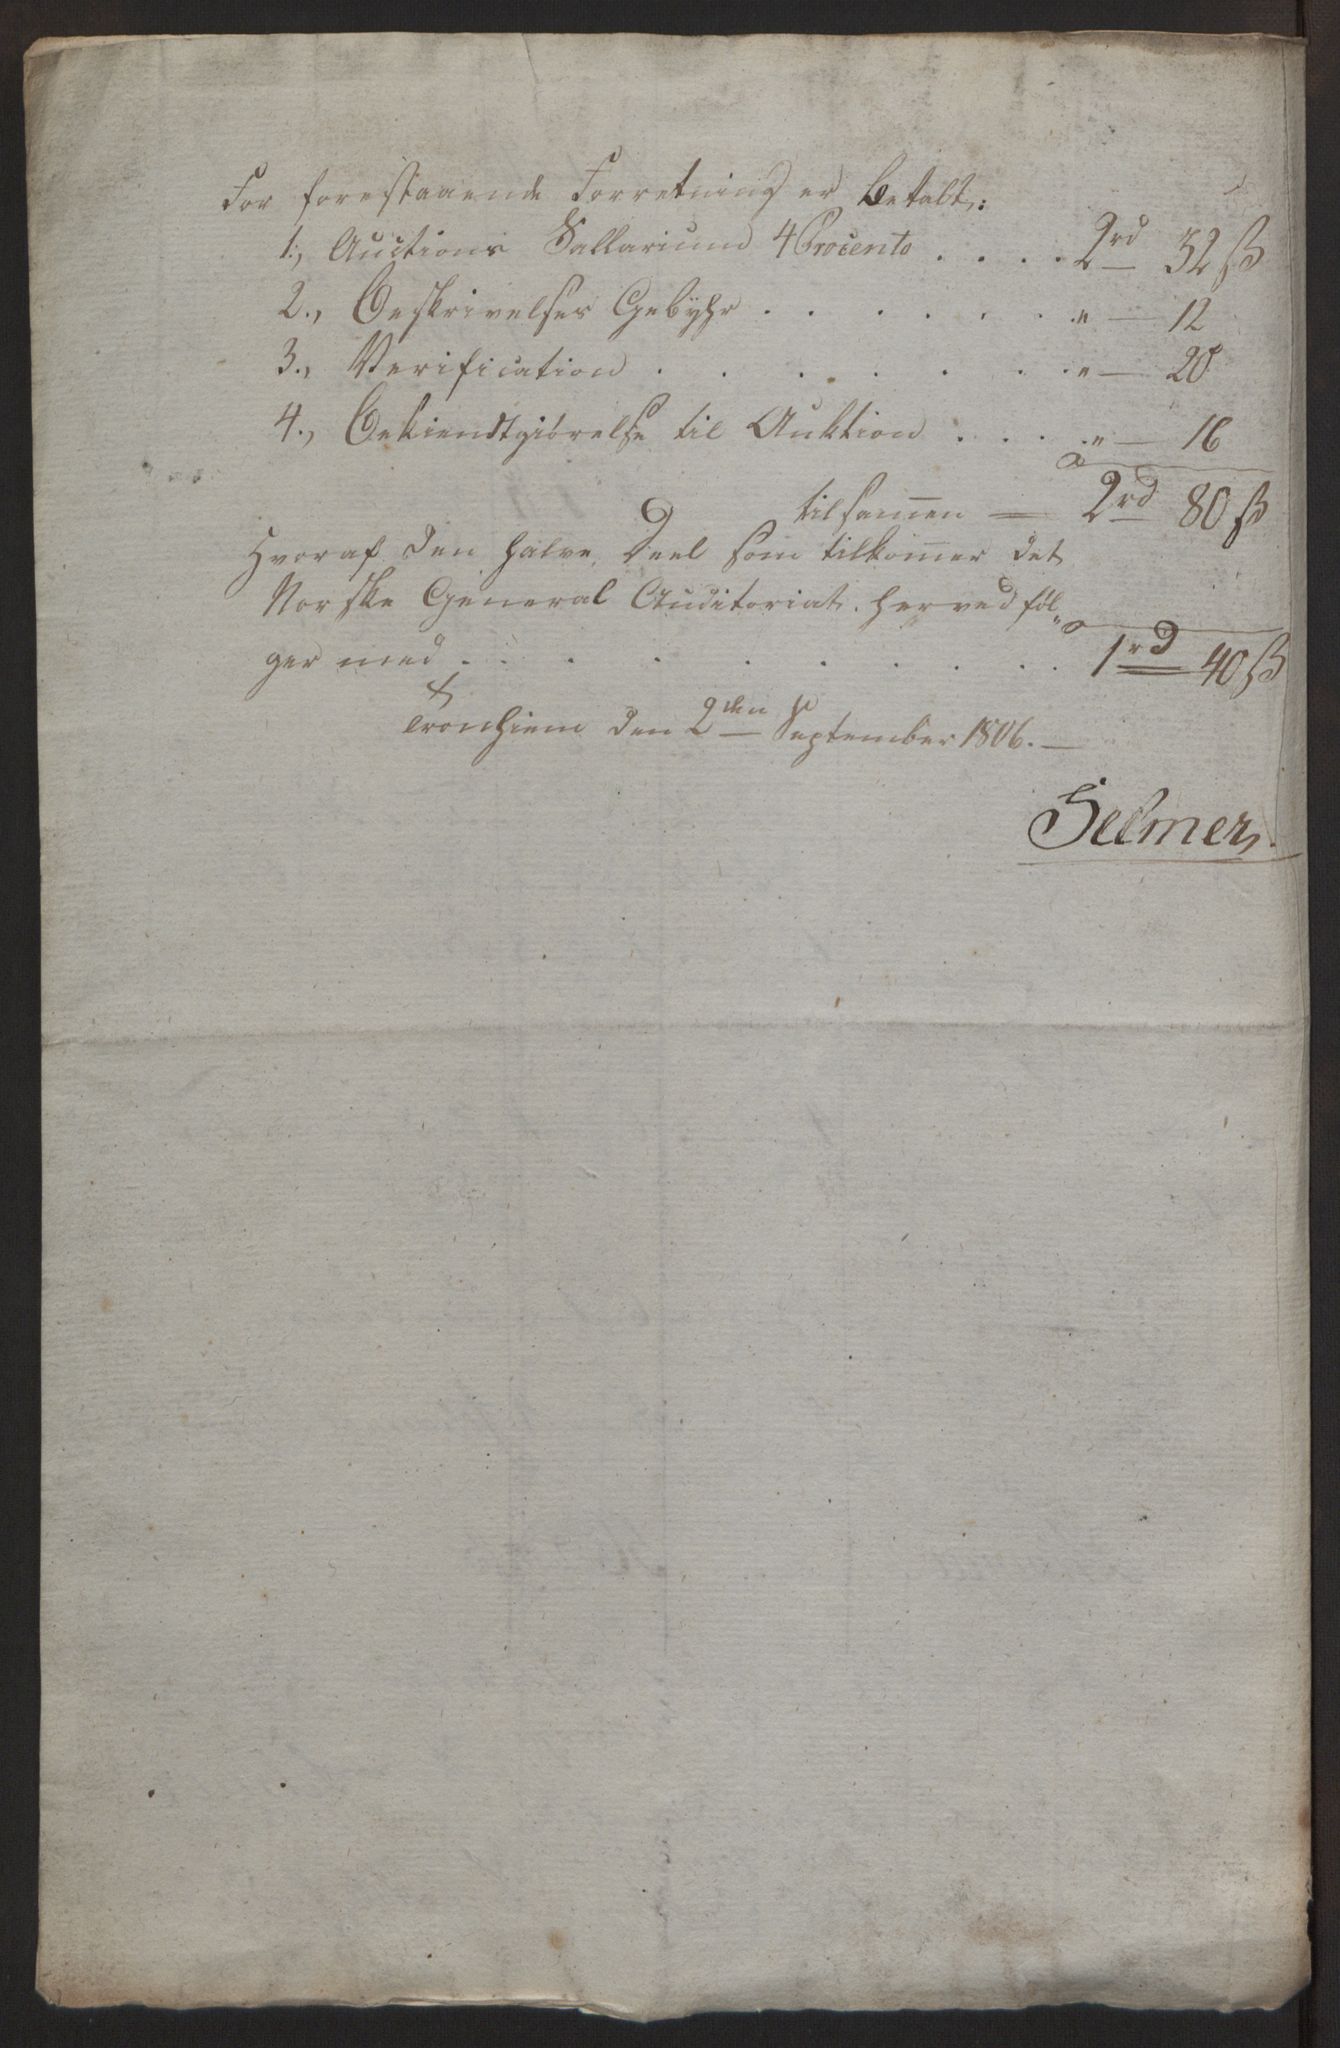 For forestaaende Forretning er betalt:
1., Auctions Sallarium 4 Procento . . . . 2rd 32 ß
2., Beskrivelses Gebyhr . . . . . . . " — 12
3., Verification . . . . . . . " — 20
4., Bekiendtgiörelse til Auktion . . . . " — 16
tilsam̅en — 2rd 80 ß
Hvoraf den halve Deel som tilkom̅er det
Norske General Auditoriat. herved föl„
ger med . . . . . . . . . 1rd 40 ß
Tronhiem den 2den September 1806. —
Selmer